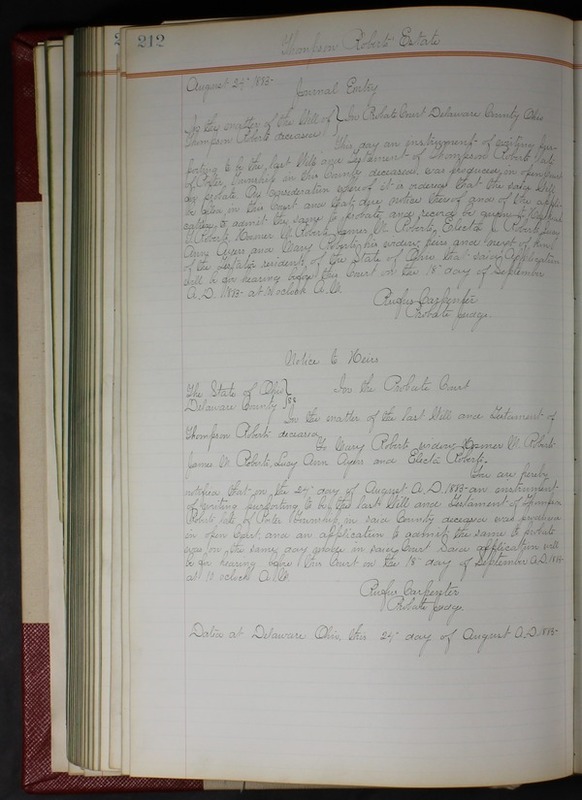 212
Thompson Roberts Estate
August 24" 1883-
Journal Entry
In the matter of the Will of } In Probate Court Delaware County Ohio
Thompson Roberts deceased }
This day an instrument of writing pur-
porting to be the last Will and Testament of Thompson Roberts late
of Porter Township in this County deceased was produced in open Court
for probate. On Consideration whereof it is ordered that the said Will
be filed in this Court and that due notice thereof and of the appli-
cation to admit the same to probate and record be given to
Roberts, Homer W. Roberts, James M. Roberts, Electa Roberts, Lucy
Ann Ayers and Mary Roberts his widow, heirs and next of kin
of the Testator residents of the State of Ohio that said Application
will be for hearing before this Court on the 18" day of September
A.D. 1883- at 10 oclock A.M.
Rufus Carpenter
Probate Judge.
Notice to Heirs
The State of Ohio } In the Probate Court
Delaware County } SS
In the matter of the last Will and Testament of
Thompson Roberts deceased
To Mary Roberts widow Homer W. Roberts
James M. Roberts, Lucy Ann Ayers and Electa Roberts.
You are hereby
notified that on the 24" day of August A.D. 1883- an instrument
of writing purporting to be the last Will and Testament of Thompson
Roberts late of Porter Township in said County deceased was produced
in open Court, and an application to admit the same to probate
was on the same day made in said Court Said application will
be for hearing before this Court on the 18" day of September A.D. 1883-
at 10 oclock A.M.
Rufus Carpenter
Probate Judge.
Dated at Delaware Ohio, this 24" day of August A.D. 1883-